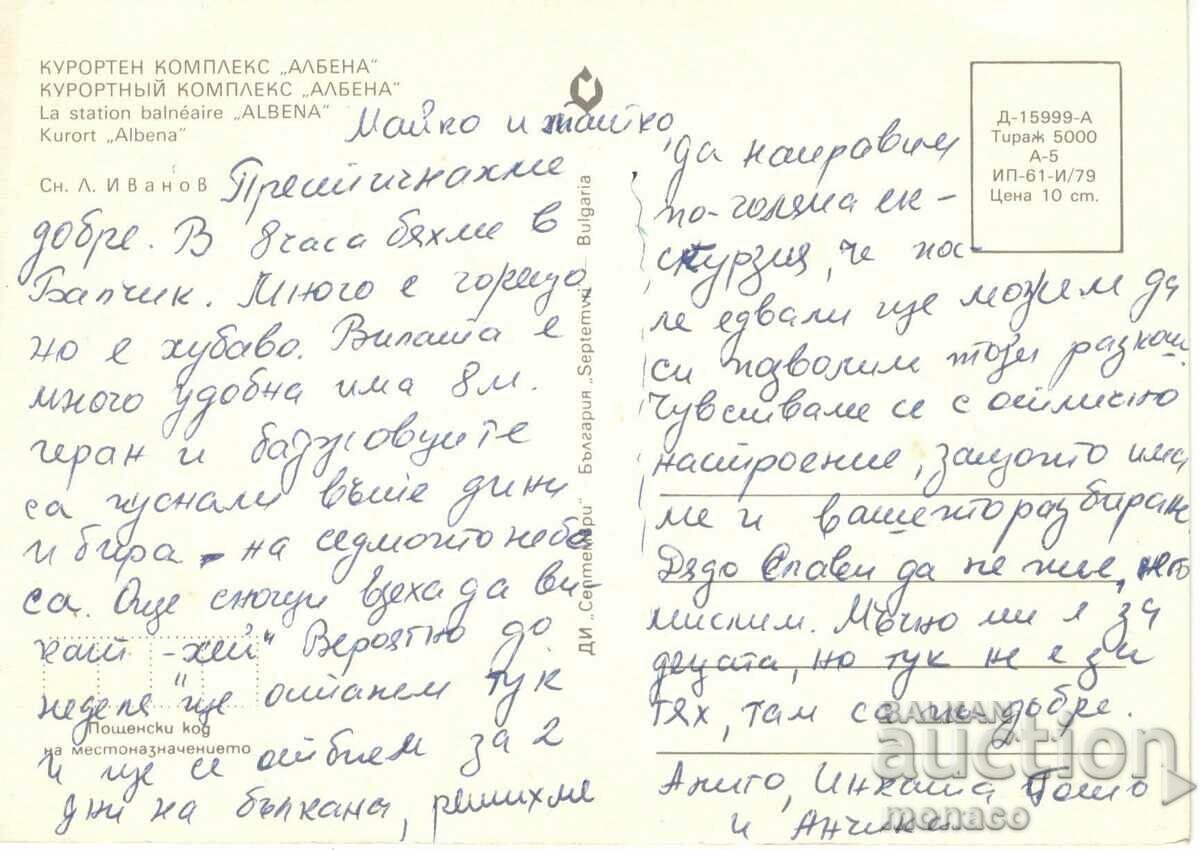 КУРОРТЕН КОМПЛЕКС „АЛБЕНА“
КУРОРТНЫЙ КОМПЛЕКС „АЛБЕНА“
La station balnéaire „ALBENA“
Kurort „Albena“
Сн. Л. Иванов
Майко и татко
Пристигнахме
добре. В 8 часа бяхме в
Балчик. Много е горещо
но е хубаво. Вилата е
много удобна има 8 м.
геран и
са пуснали вътре дини
и бира - на седмото небе
са. Още снощи взеха да ви-
кат - хей" Вероятно до
неделя ще останем тук
и ще се отбием за 2
дни на балкана, решихме
Пощенски код
на местоназначението
ДИ „Септември“ България „Septemvri“ Bulgaria
Д-15999-А
Тираж 5000
А-5
ИП-61-И/79
Цена 10 ст.
да направим
по-голяма ек-
скурзия, че по-
ле едвали ще можем да
си позволим този разкош
Чувстваме се с отлично
настроение, защото има
ме и вашето разбиран
Дядо Слави да не пие,
мислим. Мъчно ми я за
децата, но тук не е за
тях, там са по-добре.
Анито, Пошо
и
BALKAN
auction
monaco